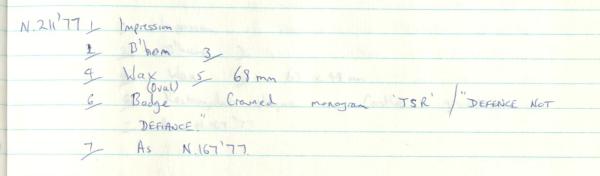 N.211'77 1/ Impression
2/ B'ham 3/
4/ Wax 5/ 68 mm
(Oval)
6/ Badge Crowned monogram 'TSR' / "DEFENCE NOT
DEFIANCE."
7/ As N.167'77